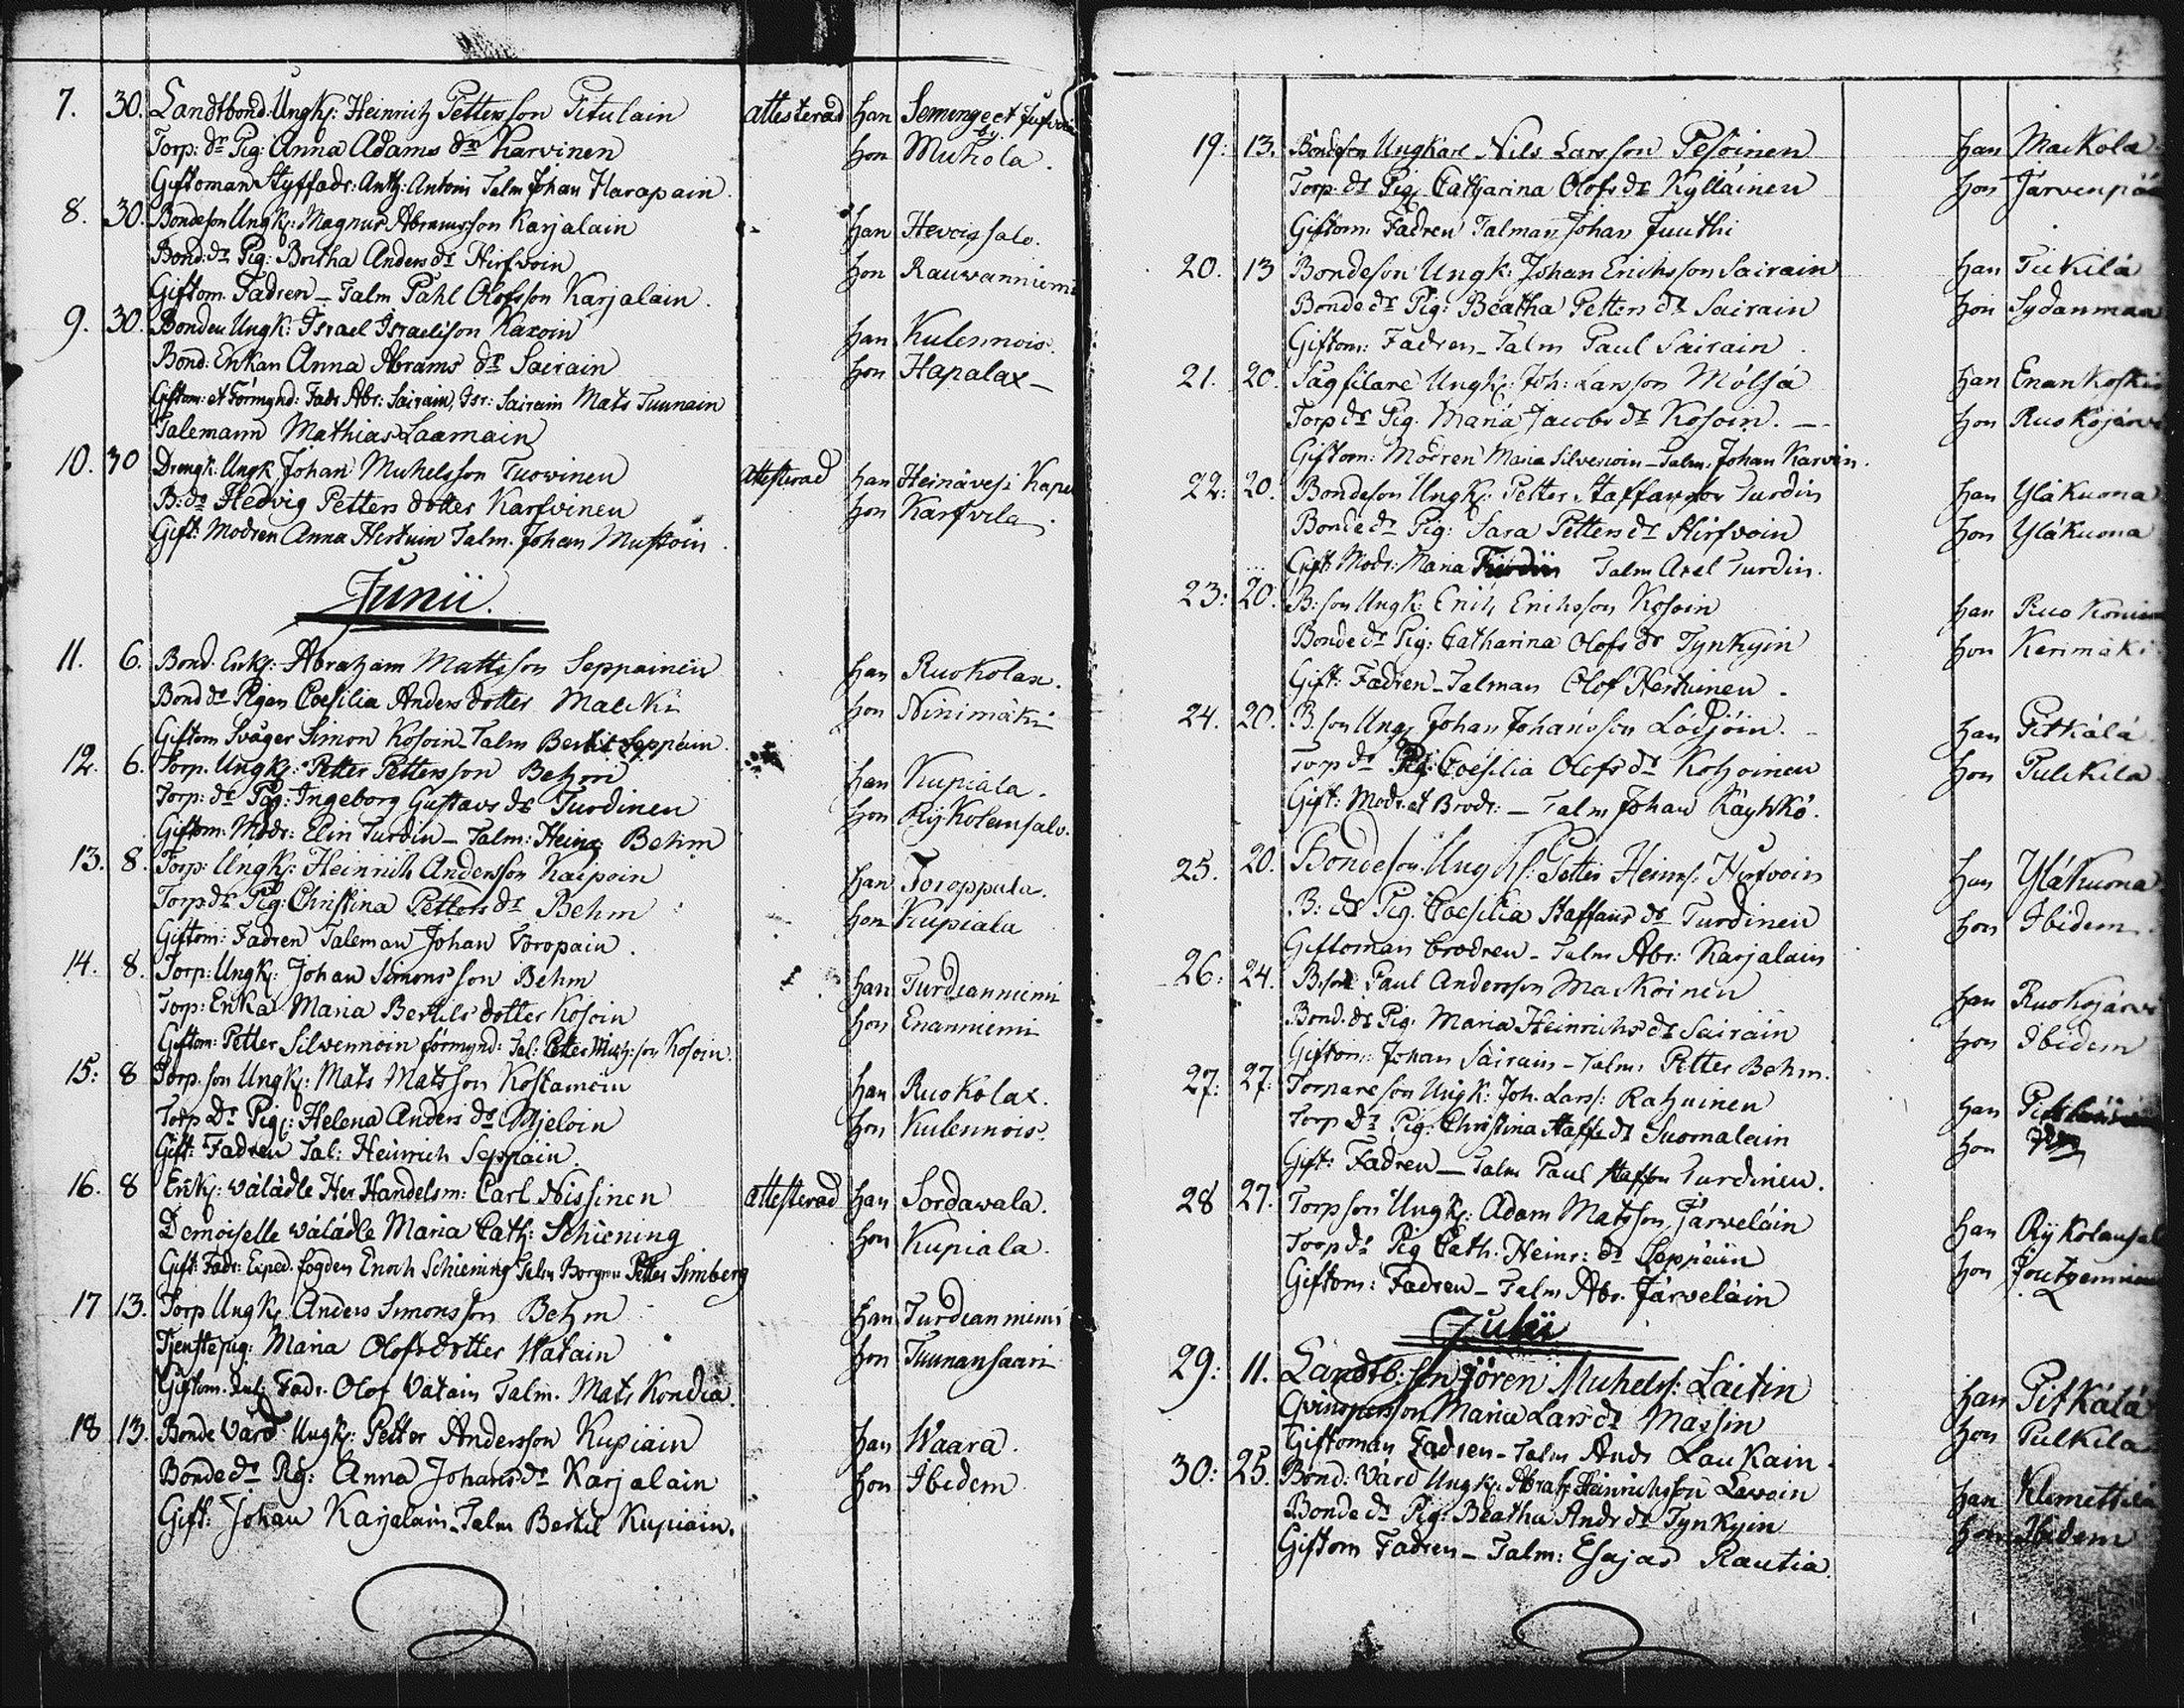 7. 30. Landtbond: Ungk: Heinrich Pettersson Pitulain attesterad han
Torp: dr Pig: Anna Adams dr Karvinen hon Muhola.
Giftoman Styffadr: Anth: Antoni Talm Johan Harapain.
8. 30. Bondeson Ungk: Magnus Abramsson Karjalain han Hevoissalo.
Bond: dr Pig: Bertha Anders dr Hirfvoin hon Rauvanniemi
Giftom. Fadren - Talm Pahl Olofsson Karjalain.
9. 30. Bonden Ungk: Israel Israelison Kaxoin han Kulennois.
Bond: Enkan Anna Abrams dr Sairain hon Hapalax -
Giftom: et Förmynd: Fadr Abr: Sairain, Isr: Sairain Mats Tuunain
Talemann Mathias Laamain
10. 30 Drengk: Ungk Johan Michelsson Tuovinen attesterad han Heinävesi Kape
B: dr Hedvig Petters dotter Karfvinen hon Karfvila.
Gift: Modren Anna Hertuin Talm. Johan Mustoin.
Junii.
11. 6. Bond. Enkj: Abraham Mattsson Seppainen han Ruokolax.
Bond dr Pigan Coesilia Anders dotter Malcki hon Ninimäki
Giftom Svåger Simon Kosoin - Talm Bertil Seppäin.
12. 6. Torp. Ungkj: Petter Pettersson Behm han Kupiala.
Torp: dr Pig: Ingeborg Gustavs dr Turdinen hon Rykolansalo.
Giftom: Modr: Elin Turdin - Talm: Heinr Behm
13. 8. Torp: Ungkj: Heinrich Andersson Kaipoin han Toroppala.
Torp dr Pig: Christina Petters dr Behm hon Kupiala
Giftom: Fadren Taleman Johan Toropain.
14. 8. Torp: Ungkj: Johan Simonsson Behm han Turdianniemi
Torp: Enka Maria Bertils dotter Kosoin hon Enanniemi
Giftom: Petter Silvennoin förmynd: Tal: Petter Mich: son Kosoin.
15: 8 Torp. son Ungkj: Mats Matsson Kostamoin han Ruokolax.
Torp Dr Pig: Helena Anders dr Mjeloin hon Kulennois.
Gift: Fadren Tal: Heinrich Seppäin.
16. 8 Enkj: välädle Her Handelsm: Carl Nissinen attesterad han Sordawala.
Demoiselle välädle Maria Cath: Schiening hon Kupiala.
Gift: Fadr: Exped. fogden Enoch Schiening Talm Borgmr Petter Simberg
17 13. Torp Ungkj Anders Simonsson Behm han Turdianniemi
Tjenstepig: Maria Olofsdotter Watain hon Tuunansaari
Giftom. Fadr. Olof Vatain Talm. Mats Kondia.
18 13. Bonde Värd Ungkj: Petter Andersson Kupiain han Waara.
Bonde dr Pig: Anna Johans dr Karjalain hon Ibidem
Gift: Johan Karjalain - Talm Bertil Kupiain.
19: 13. Bondeson Ungkarl Nils Larsson Pesoinen han Mackola
Torp: dr Pig Catharina Olofs dr Kylläinen hon Järvenpää
Giftom: Fadren Talman Johan Juuthi
20. 13 Bondeson Ungk: Johan Erichsson Sairain han Tuckilä
Bonde dr Pig: Beatha Petters dr Sairain hon Sydanmaa
Giftom: Fadren - Talm Paul Sairain.
21. 20. Sågfilare Ungkj: Joh: Larsson Mölsä han Enankoski
Torp dr Pig. Maria Jacobs dr Kosoin. hon Ruokojärvi
Giftom: Modren Maria Silvenoin - Talm: Johan Karvin.
22: 20. Bondeson Ungkj: Petter Staffansson Turdin han Yläkuona
Bonde dr Pig: Sara Petters dr Hirfvoin hon Yläkuona
Gift: Modr: Maria Turdin Talm Axel Turdin.
23: 20: B: son Ungk: Erich Erichsson Kosoin han
Bonde dr Pig: Catharina Olofs dr Tynkyin hon Kerimäki
Gift: Fadren - Talman Olof Hertuinen.
24. 20. B. son Ungj Johan Johansson Lodjoin. han Pitkälä
Torp dr Pig: Coesilia Olofs dr Kohoinen hon Pulckila
Gift: Modr. et Brodr: - Talm Johan Käyhkö.
25. 20. Bondeson Ungkj: Petter Heinrs: Hirfvoin han Yläkuona
B: dr Pig: Coesilia Staffans dr Turdinen hon Ibidem.
Giftoman brodren - Talm Abr: Karjalain
26: 24. B: son Paul Andersson Maskoinen han Ruokojärvi
Bond. dr Pig: Maria Heinrichs dr Sairain hon Ibidem
Giftom: Johan Sairain - Talm: Petter Behm.
27: 27: Torpareson Ungk: Joh. Larss: Rahuinen han
Torp Dr Pig: Christina Staffs dr Suomalain hon
Gift: Fadren - Talm Paul Staffsn Turdinen.
28 27. Torpson Ungkj: Adam Matsson Järveläin han Rykolansal
Torp dr Pig Cath: Heinr: dr Seppäin hon
Giftom: Fadren - Talm Abr. Järveläin
Julii
29: 11. Landtb: son Jören Michelss: Laitin han Pitkälä
Qvinsperson Maria Lars dr Massin hon Pulkila
Giftoman Fadren - Talm Andr Laukain.
30: 25. Bond: Värd Ungkj: Abrah Heinrichsson Lewoin han Klemettilä
Bonde dr Pig: Beatha Andr dr Tynkyin hon Ibidem
Giftom Fadren - Talm: Esajas Rautia.